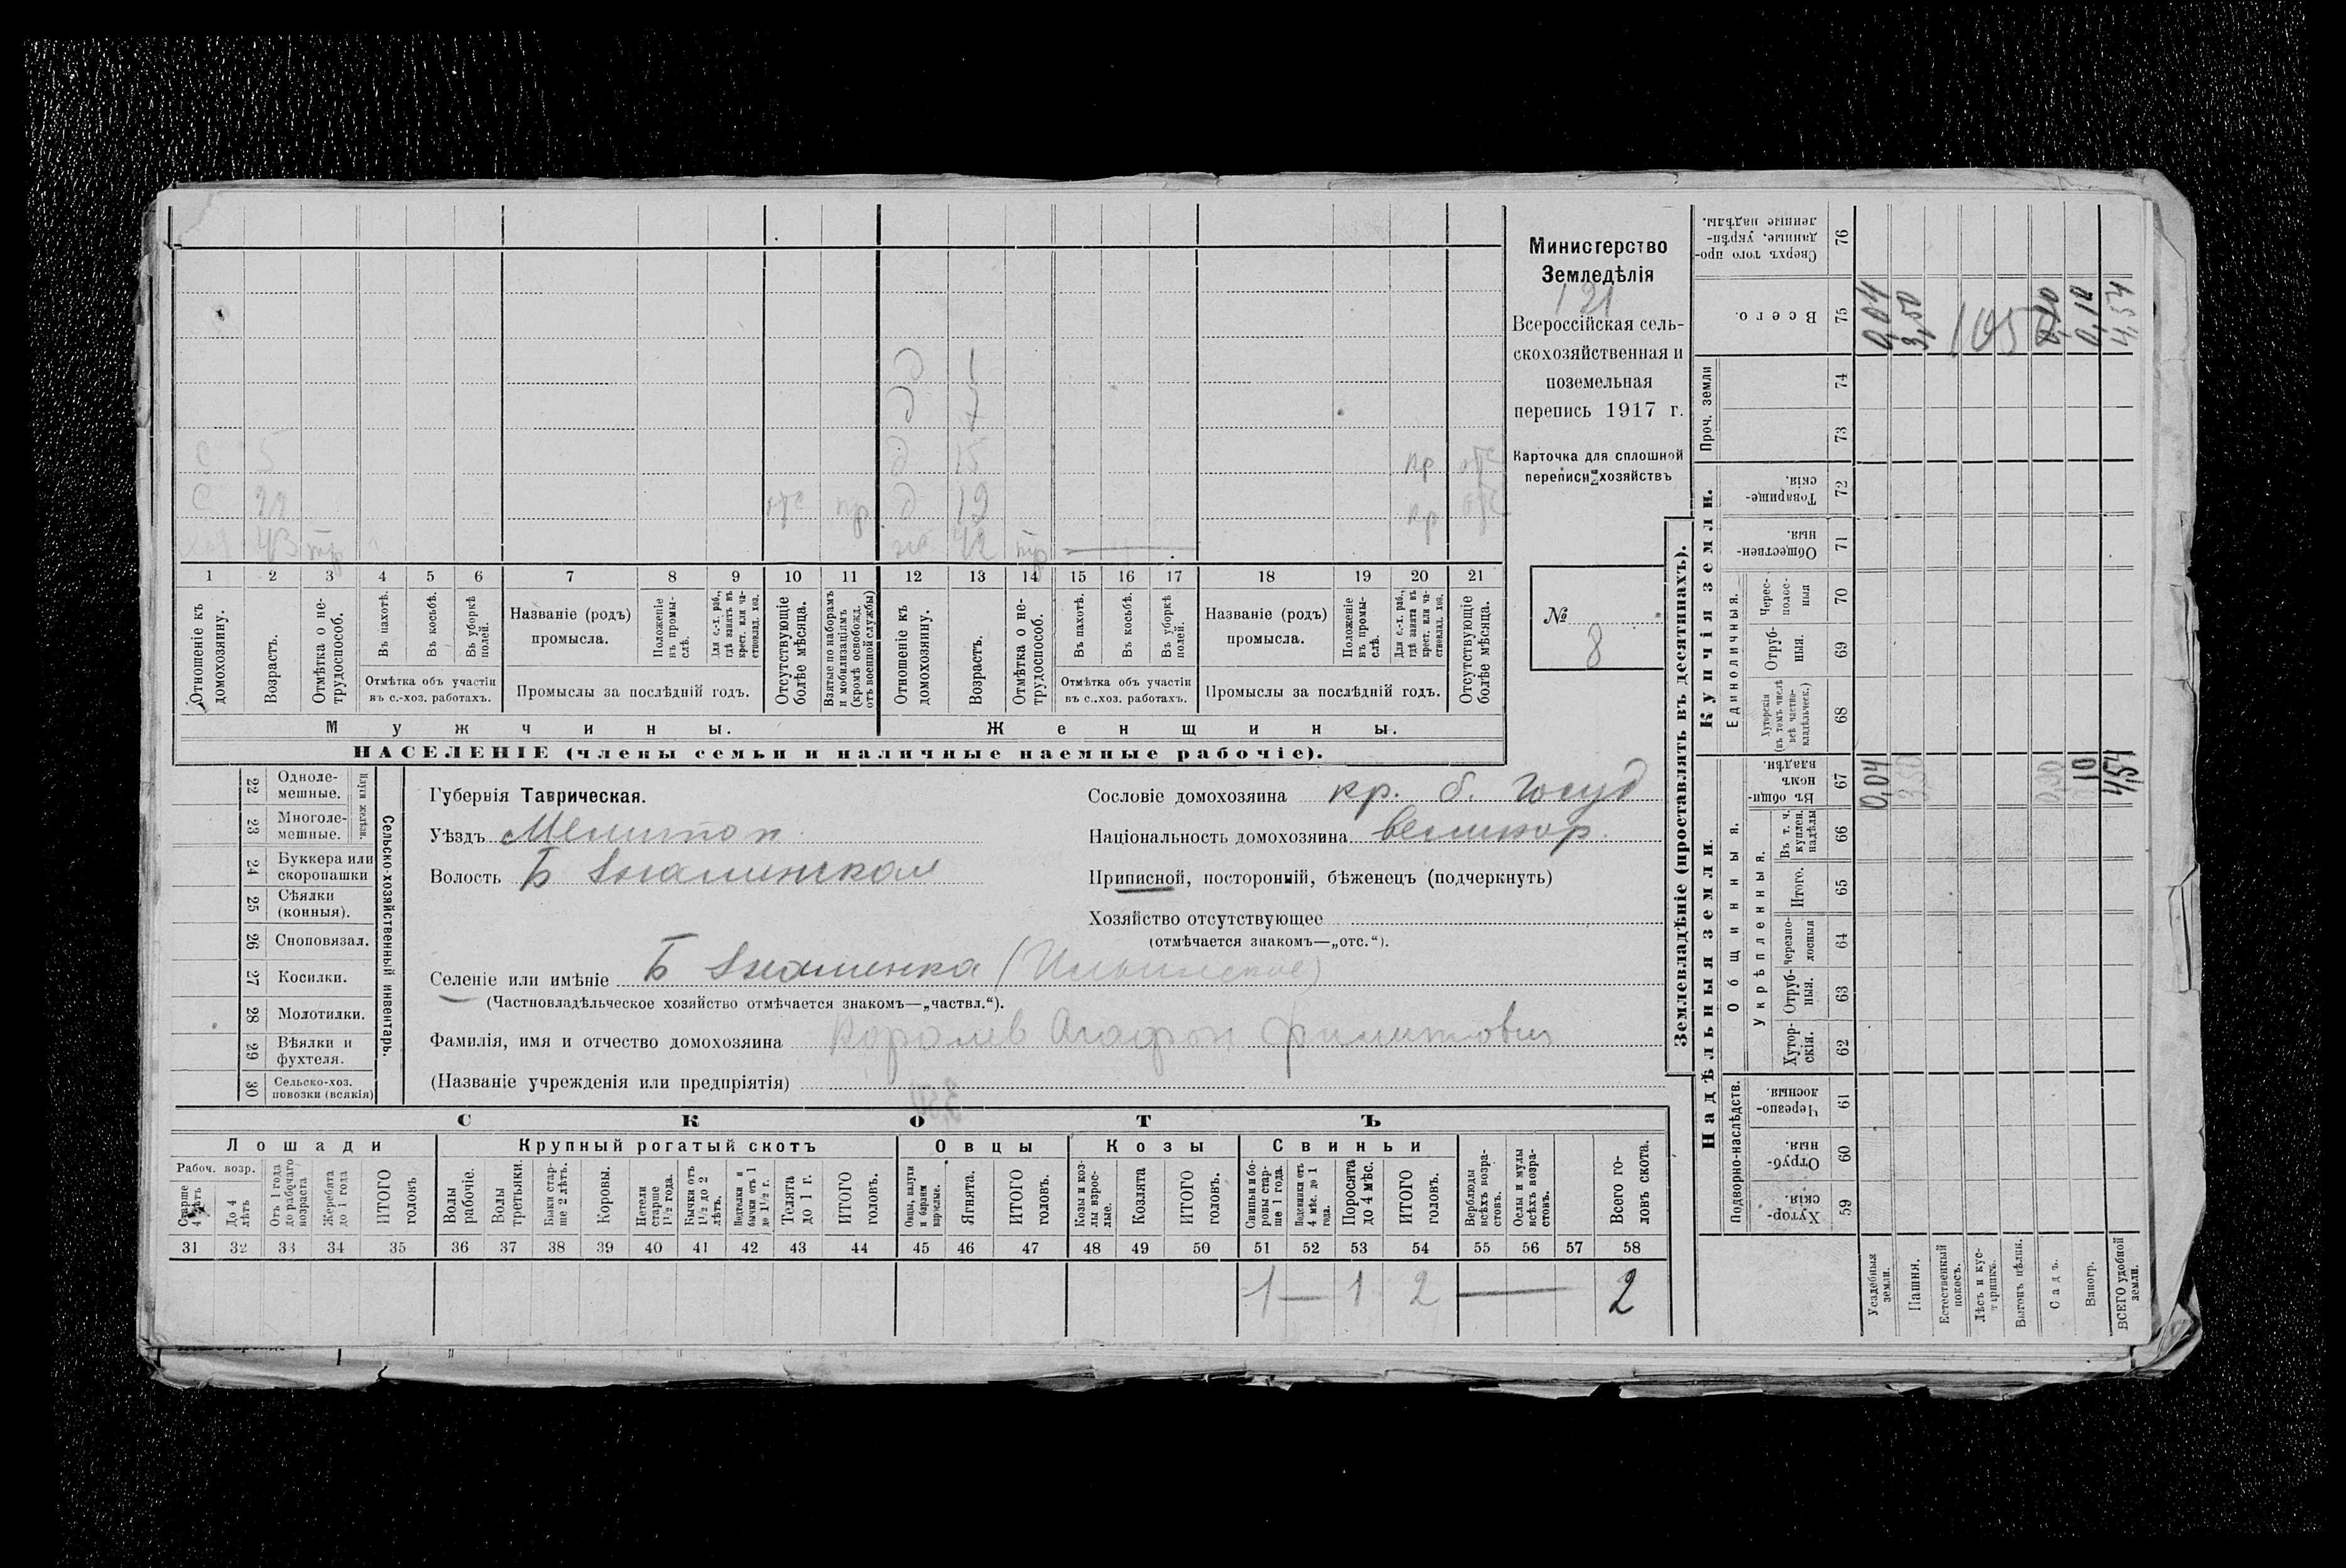 Министерство
Земледѣлія
121
Всероссійская сель-
скохозяйственная и
поземельная
перепись 1917 г.
Карточка для сплошной
переписи хозяйствъ
№
8
д 1
д 7
с 5 д 15 пр отс
с 22 отс пр д 19 пр отс
хоз 43 тр 42 тр
1 2 3 4 5 6 7 8 9 10 11 12 13 14 15 16 17 18 19 20 21
Отношеніе къ домохозяину.
Возрастъ.
Отмѣтка о не-трудоспособ.
Въ пахотѣ.
Въ косьбѣ.
Въ уборкѣ полей.
Отмѣтка объ участіи
въ с.-хоз. работахъ.
Названіе (родъ)
промысла.
Положеніе въ промы-слѣ.
Для с.-х. раб., гдѣ занятъ въ крест. или ча-стновлад. хоз.
Промыслы за послѣдній годъ.
Отсутствующіе болѣе мѣсяца.
Взятые по наборамъ и мобилизаціямъ (кромѣ освобожд. отъ военной службы)
Отношеніе къ домохозяину.
Возрастъ.
Отмѣтка о не-трудоспособ.
Въ пахотѣ.
Въ косьбѣ.
Въ уборкѣ полей.
Отмѣтка объ участіи
въ с..хоз. работахъ.
Названіе (родъ)
промысла.
Положеніе въ промы-слѣ.
Для с.-х. раб., гдѣ занята въ крест. или ча-стновлад. хоз.
Промыслы за послѣдній годъ.
Отсутствующіе болѣе мѣсяца.
Мужчины.
Женщины.
НАСЕЛЕНІЕ (члены семьи и наличные наемные рабочіе).
22 Одноле-мешные.
23 Многоле-мешные.
24 Буккера или скоропашки
25 Сѣялки (конныя).
26 Сноповязал.
27 Косилки.
28 Молотилки.
29 Вѣялки и фухтеля.
30 Сельско-хоз. повозки (всякія)
Сельско-хозяйственный инвентарь.
Губернія Таврическая.
Уѣздъ Мелитоп.
Волость Б Знаменская
Селеніе или имѣніе Б Знаменка (Ильинское)
(Частновладѣльческое хозяйство отмѣчается знакомъ—„частвл.“).
Фамилія, имя и отчество домохозяина Королев Агафон Филиппович
(Названіе учрежденія или предпріятія)
Сословіе домохозяина кр. б. Госуд
Національность домохозяина великор.
Приписной, посторонній, бѣженецъ (подчеркнуть)
Хозяйство отсутствующее
(отмѣчается знакомъ—„отс.“).
СКОТЪ
Лошади
Крупный рогатый скотъ
Овцы
Козы
Свиньи
Рабоч. возр.
Старше 4 лѣтъ
До 4 лѣтъ
Отъ 1 года до рабочаго возраста
Жеребята до 1 года
ИТОГО головъ
Волы рабочіе.
Волы третьяки.
Быки стар-ше 2 лѣтъ.
Коровы.
Нетели старше 1 1/2 года.
Бычки отъ 1 1/2 до 2 лѣтъ.
Нетелки и бычки отъ 1 до 1 1/2 г.
Телята до 1 г.
ИТОГО головъ.
Овцы, валухи и бараны взрослые.
Ягнята.
ИТОГО головъ.
Козы и коз-лы взрос-лые.
Козлята
ИТОГО головъ.
Свиньи и бо-ровы стар-ше 1 года.
Подсвинки отъ 4 мѣс. до 1 года.
Поросята до 4 мѣс.
ИТОГО головъ.
Верблюды всѣхъ возра-стовъ.
Ослы и мулы всѣхъ возра-стовъ.
Всего го-ловъ скота.
31 32 33 34 35 36 37 38 39 40 41 42 43 44 45 46 47 48 49 50 51 52 53 54 55 56 57 58
1 — 1 2 — 2
Землевладѣніе (проставлять въ десятинахъ).
Надѣльныя земли.
Купчія земли.
Проч. земли
Подворно-наслѣдств.
Общинныя.
Укрѣпленныя.
Единоличныя.
59 Хутор-скія.
60 Отруб-ныя.
61 Черезпо-лосныя.
62 Хутор-скія.
63 Отруб-ныя.
64 Черезпо-лосныя
65 Итого.
66 Въ т. ч. куплен. надѣлы
67 Въ общи-номъ владѣн.
68 Хуторскія (въ томъ числѣ всѣ частно-владѣльческ.)
69 Отруб-ныя.
70 Черес-полос-ныя
71 Обществен-ныя.
72 Товарище-скія.
73
74
75 Всего.
76 Сверхъ того про-данные, укрѣп-ленные надѣлы.
Усадебныя земли. 0,04 0,04
Пашня. 3,50 3,50
Естественный покосъ.
Лѣсъ и кус-тарникъ.
Выгонъ цѣлин.
105
Садъ. 0,20
Виногр. 10 0,10
ВСЕГО удобной земли. 4,54 4,54